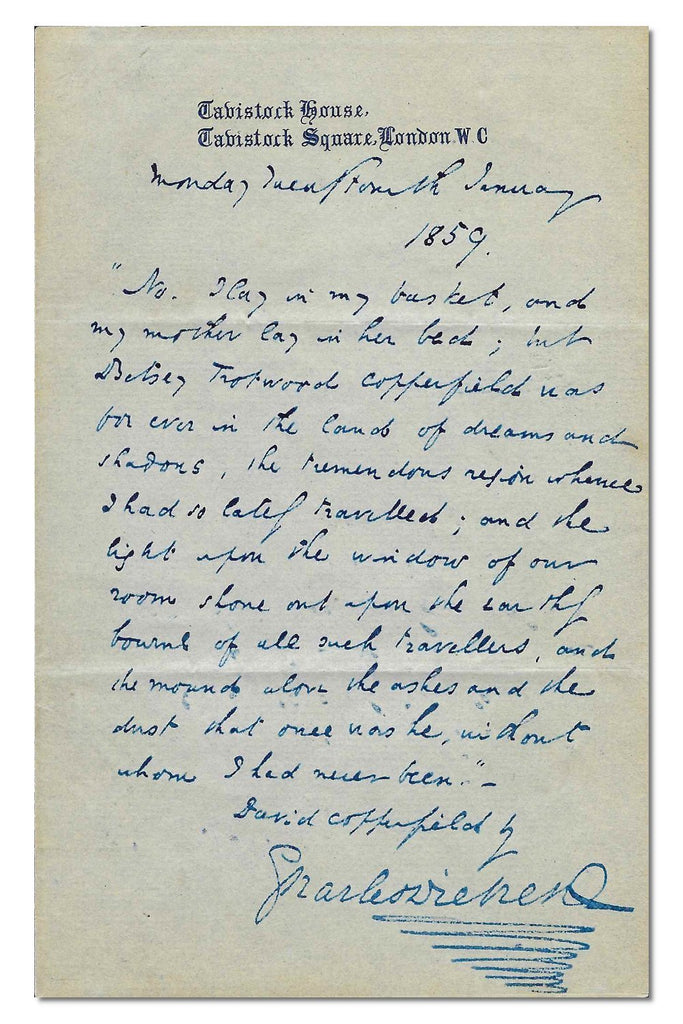 Tavistock House,
Tavistock Square, London. W C
Monday Twenty Fourth January
1859.
"No. I lay in my basket, and
my mother lay in her bed; but
Betsey Trotwood Copperfield was
for ever in the land of dreams and
shadows, the tremendous region whence
I had so lately travelled; and the
light upon the window of our
room shone out upon the earthly
bourne of all such travellers, and
the mound above the ashes and the
dust that once was he, without
whom I had never been."–
David Copperfield by
Charles Dickens